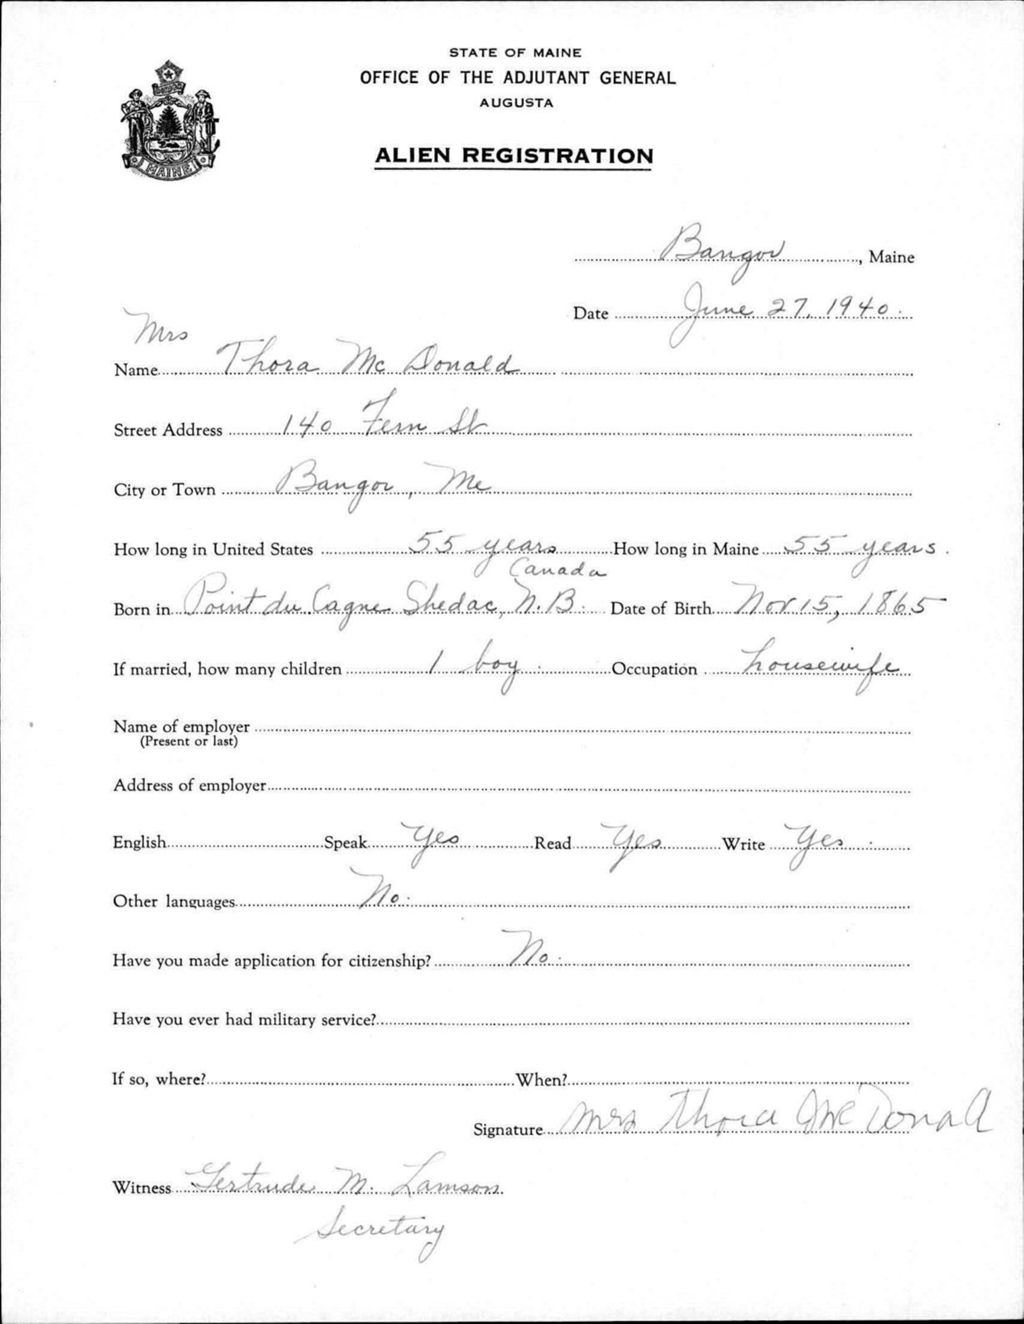 STATE OF MAINE
OFFICE OF THE ADJUTANT GENERAL
AUGUSTA
ALIEN REGISTRATION
MAINE
Bangor, Maine
Date June 27, 1940.
Mrs
Name Thora Mc Donald
Street Address 140 Fern St
City or Town Bangor, Me
How long in United States 55 years How long in Maine 55 years.
Canada
Born in Point du Cagne Shedac, N.B. Date of Birth Nov 15, 1865
If married, how many children 1 boy. Occupation housewife
Name of employer
(Present or last)
Address of employer
English Speak Yes Read Yes Write Yes.
Other languages No.
Have you made application for citizenship? No.
Have you ever had military service?
If so, where? When?
Signature Mrs Thora Mc Donald
Witness Gertrude M. Lamson
Secretary